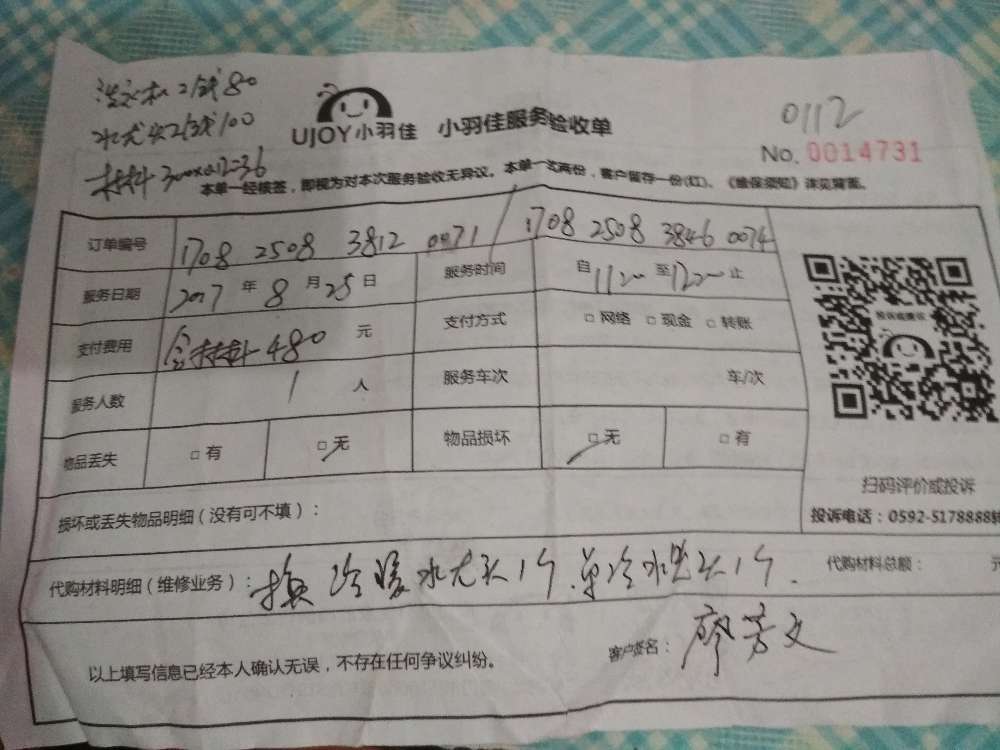 80
水龙头2/戋100
300x0.12=36
UJOY小羽佳 小羽佳服务验收单
0112
No. 0014731
本单一经核签，即视为对本次服务验收无异议。本单一式两份，客户留存一份(红)、《维保须知》详见背面。
订单编号 1708 2508 3812 0071 / 1708 2508 3846 0074
服务日期 2017 年 8 月 25 日 服务时间 自 至 止
支付费用 480 元 支付方式 □ 网络 □ 现金 □ 转账
服务人数 1 人 服务车次 车/次
物品丢失 □ 有 □ 无 物品损坏 □ 无 □ 有
扫码评价或投诉
投诉电话：0592-5178888转
损坏或丢失物品明细（没有可不填）：
代购材料明细（维修业务）：换冷暖水龙头1个.单冷水龙头1个. 代购材料总额： 元
以上填写信息已经本人确认无误，不存在任何争议纠纷。 客户签名：廖芳文